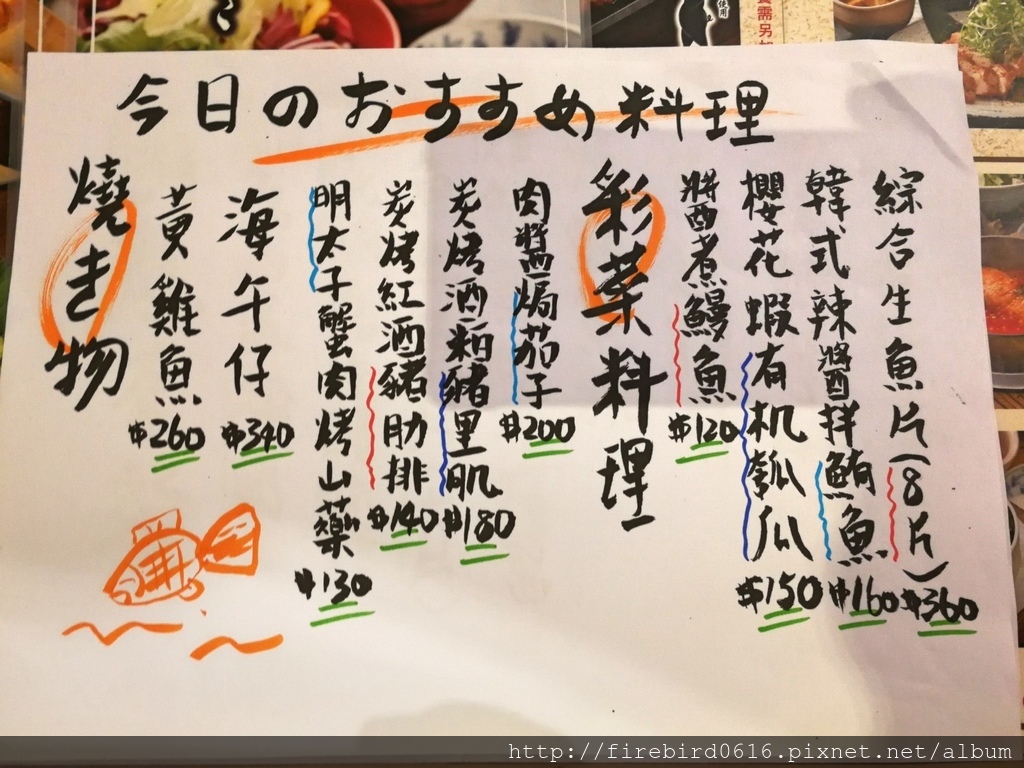 今日のおすすめ料理
綜合生魚片(8片)$360
韓式辣醬拌鮪魚$160
櫻花蝦有机瓠瓜$150
醬煮鰻魚$120
彩菜料理
肉醬焗茄子$200
炭烤酒粕豬里肌$180
炭烤紅酒豬肋排$140
明太子蟹肉烤山藥$130
海午仔$340
黃雞魚$260
燒き物
使用
需另加
http://firebird0616.pixnet.net/album